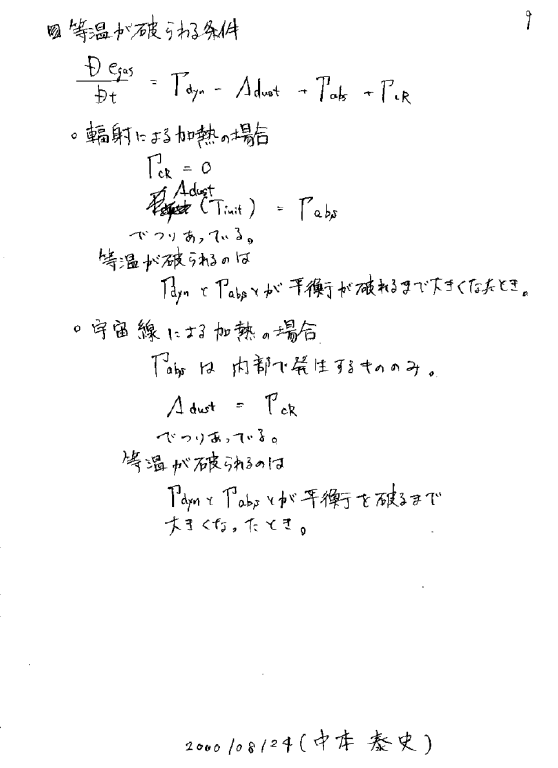 9
等温が破られる条件
Đ egas / Đt = Γdyn - Λdust + Γabs + ΓCR
○ 輻射による加熱の場合
ΓCR = 0
Λdust (Tinit) = Γabs
でつりあっている。
等温が破られるのは
ΓdynとΓabsとが平衡行が破れるまで大きくなたとき。
○ 宇宙線による加熱の場合
Γabs は 内部で発生するもののみ。
Λdust = ΓCR
でつりあっている。
等温が破られるのは
ΓdynとΓabsとが平衡行を破るまで
大きくなったとき。
2000/08/24 (中本 泰史)